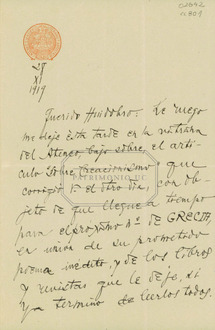 27
XI
1919
Querido Huidobro: Le ruego
me deje esta tarde en la
del Ateneo, bajo sobre, el artí-
culo sobre "Creacionismo" que
corrigió el otro día, con ob-
jeto de que llegue a tiempo
para el próximo nº de GRECIA,
en unión de su prometido
poema inédito, y de los libros
y revistas que le dejé, si
ya terminó de leerlos todos.
PATRIMONIO UC